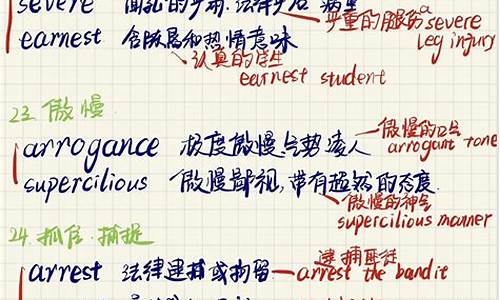 severe
严重的腿伤 a severe leg injury
earnest 含殷勤和热情意味
认真的学生
earnest student
23. 傲慢
arrogance 极度傲慢,气势凌人
傲慢的口气
arrogant tone
supercilious 傲慢鄙视,带有超然的态度
傲慢的神气
supercilious manner
24. 抓住.捕捉
arrest 法律逮捕或拘留
逮捕匪徒
arrest the bandit